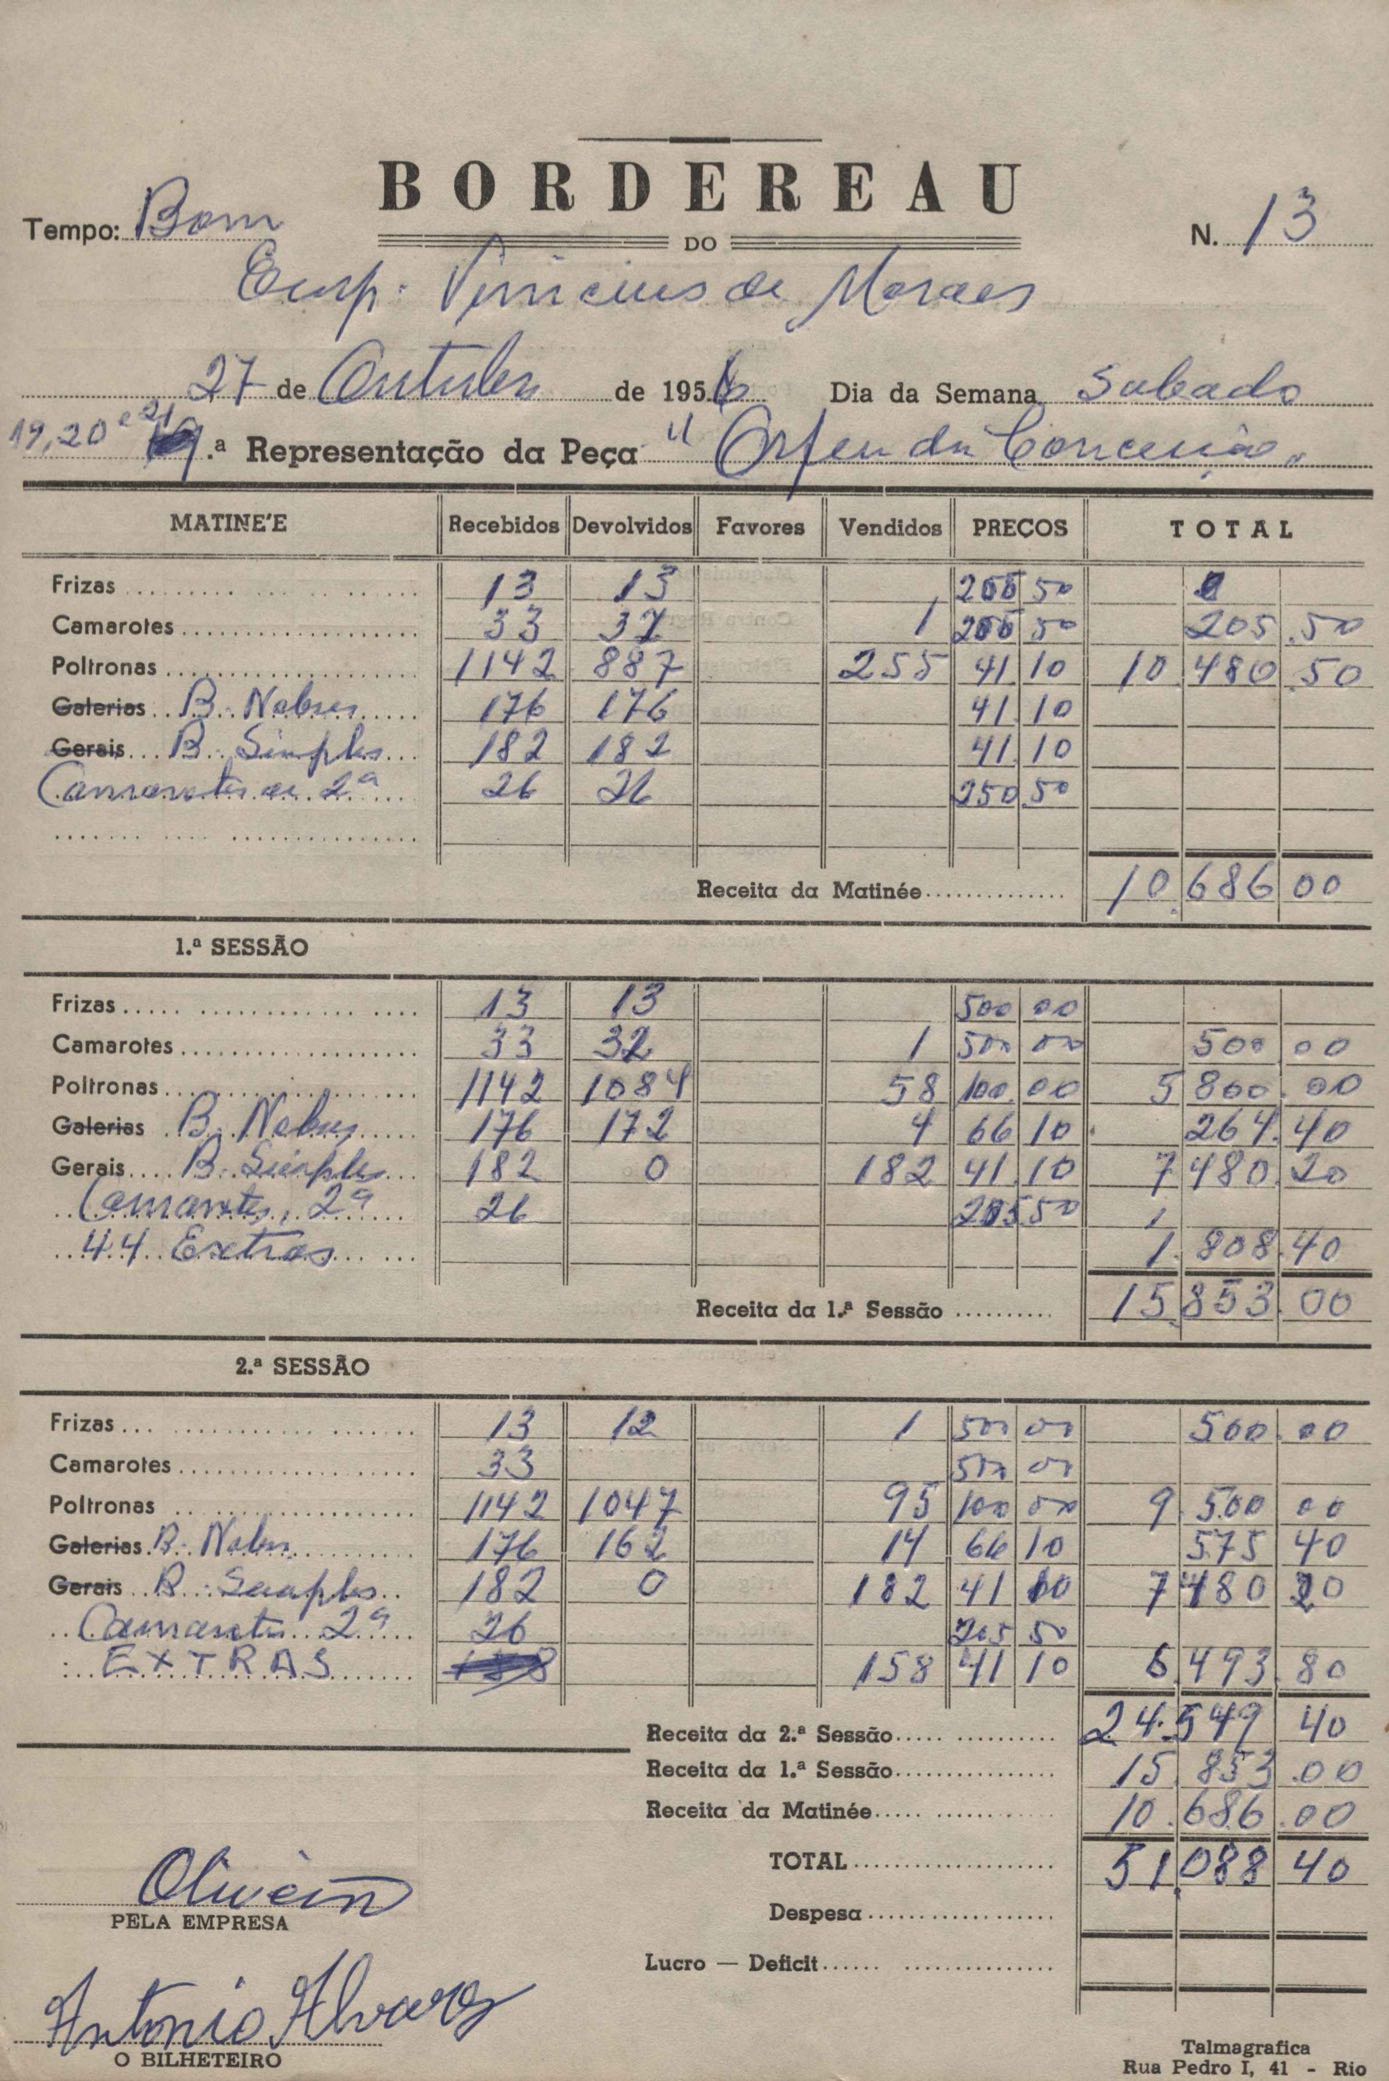 BORDEREAU
Tempo: Bom DO N. 13
Emp. Vinicius de Moraes
27 de Outubro de 1956 Dia da Semana Sabado
19, 20 e 21 .ª Representação da Peça "Orfeu da Conceição"
MATINE'E Recebidos Devolvidos Favores Vendidos PREÇOS TOTAL
Frizas 13 13 205 50
Camarotes 33 32 1 205 50 205.50
Poltronas 1142 887 255 41.10 10.480.50
Galerias B. Nobres 176 176 41.10
Gerais B. Simples 182 182 41.10
Camarotes de 2ª 26 26 250.50
Receita da Matinée 10.686 00
1.ª SESSÃO
Frizas 13 13 500 00
Camarotes 33 32 1 500 00 500 00
Poltronas 1142 1084 58 100.00 5 800.00
Galerias B. Nobres 176 172 4 66 10 264.40
Gerais B. Simples 182 0 182 41.10 7 480.20
Camarotes, 2ª 26 205 50
44 Extras 1.808.40
Receita da 1.ª Sessão 15.853.00
2.ª SESSÃO
Frizas 13 12 1 500 00 500.00
Camarotes 33 500 00
Poltronas 1142 1047 95 100 00 9.500 00
Galerias B. Nobres 176 162 14 66 10 575 40
Gerais B. Simples 182 0 182 41 10 7480 20
Camarotes 2ª 26 205 50
EXTRAS 158 41 10 6.493.80
Receita da 2.ª Sessão 24.549 40
Receita da 1.ª Sessão 15.853.00
Receita da Matinée 10.686.00
TOTAL 51.088 40
Oliveira
PELA EMPRESA
Despesa
Lucro — Deficit
Antonio Alvarez
O BILHETEIRO
Talmagrafica
Rua Pedro I, 41 - Rio